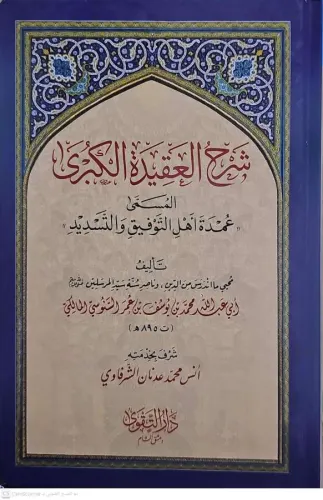 شرح العقيدة الكبرى
المسمى
"عمدة أهل التوفيق والتسديد"
تأليف
محيي ما اندرس من الدين، وناصر سنة سيد المرسلين
أبي عبد الله محمد بن يوسف بن عمر السنوسي المالكي
(ت ٨٩٥ هـ)
شرف بخدمته
أنس محمد عدنان الشرفاوي
دار التقوى
دمشق الشام